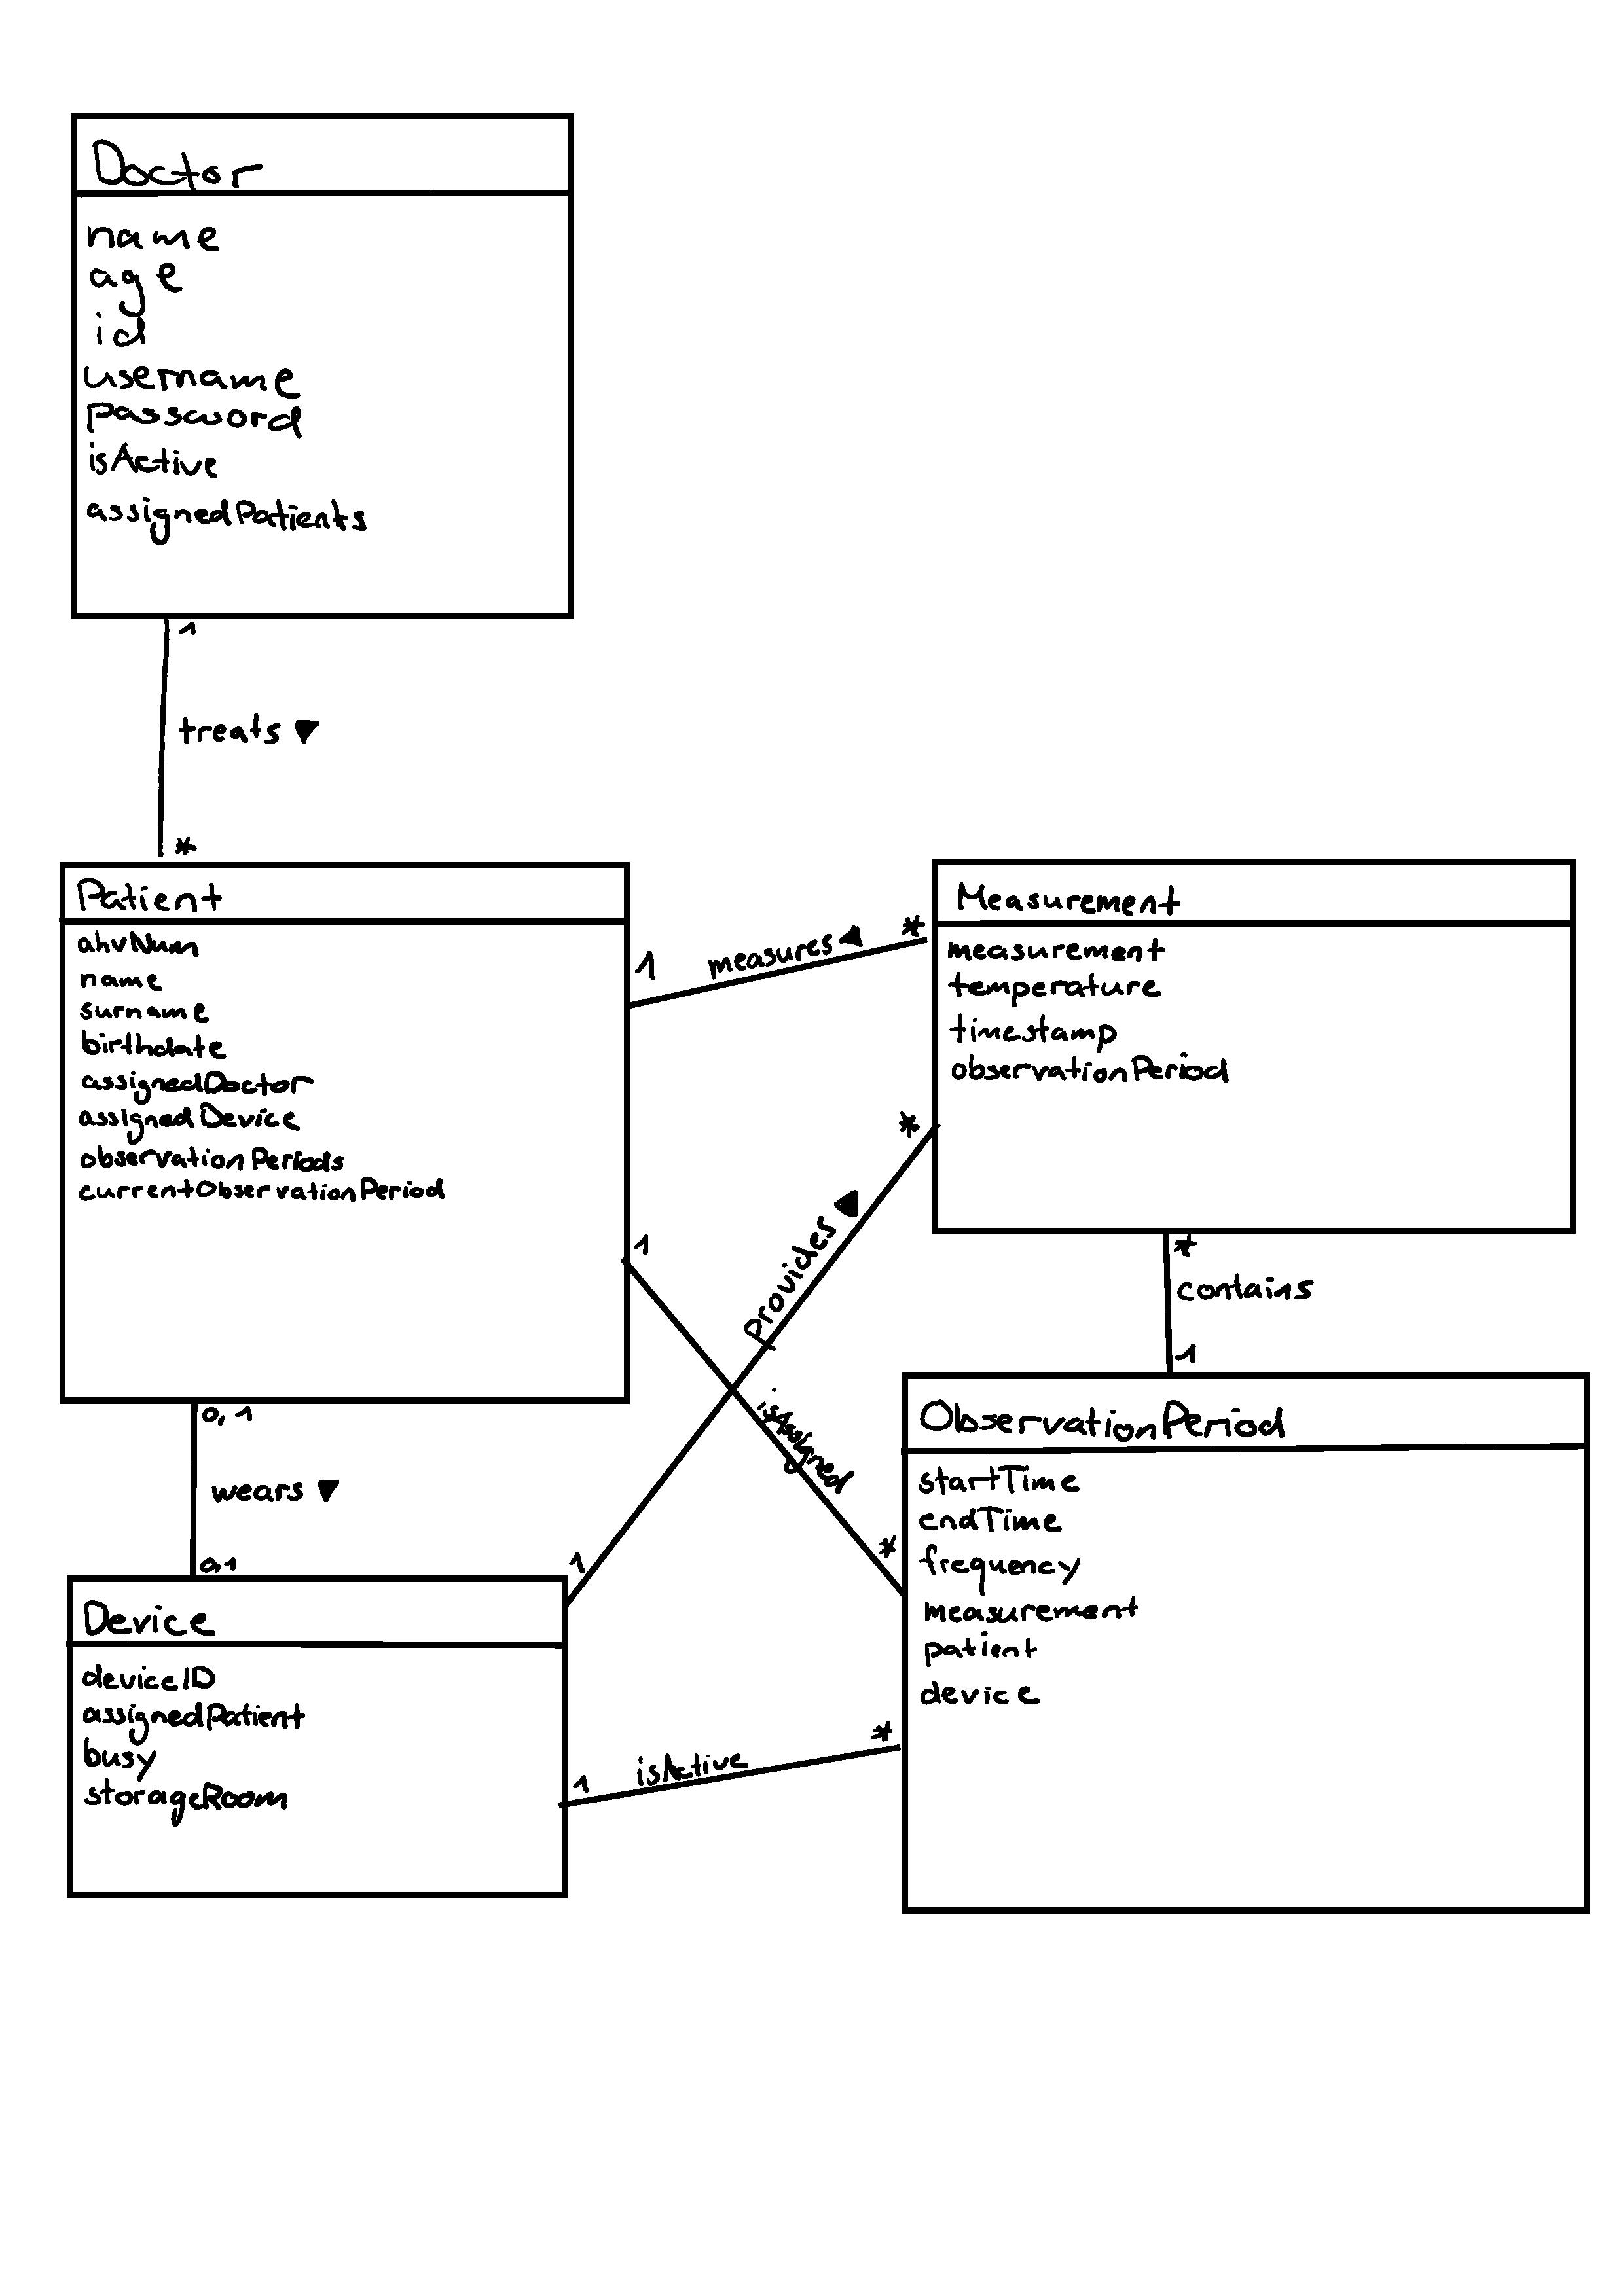 Doctor
name
age
id
username
password
isActive
assignedPatients
1
treats ▼
*
Patient
ahvNum
name
surname
birthdate
assignedDoctor
assignedDevice
observationPeriods
currentObservationPeriod
1
measures ◀
*
Measurement
measurement
temperature
timestamp
observationPeriod
*
Provides
1
1
isAssigned
*
*
contains
1
0,1
wears ▼
0,1
Device
deviceID
assignedPatient
busy
storageRoom
1
isActive
*
ObservationPeriod
startTime
endTime
frequency
measurement
patient
device